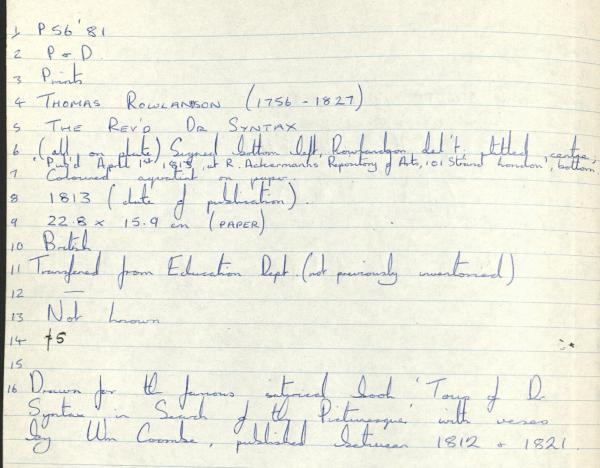 1 P56'81
2 P & D
3 Prints
4 THOMAS ROWLANDSON (1756 - 1827)
5 THE REV'D DR SYNTAX
6 (all on plate) Signed bottom left, Rowlandson del't, titled centre,
"Pub'd April 1st 1813, at R. Ackermanns Repository of Arts, 101 Strand London, bottom
7 Coloured aquatint on paper
8 1813 (date of publication).
9 22.8 x 15.9 cm (PAPER)
10 British
11 Transferred from Education Dept. (not previously inventoried)
12 —
13 Not known
14 £5
15
16 Drawn for the famous satirical book 'Tour of Dr
Syntax in Search of the Picturesque' with verses
by Wm Coombe, published between 1812 & 1821.